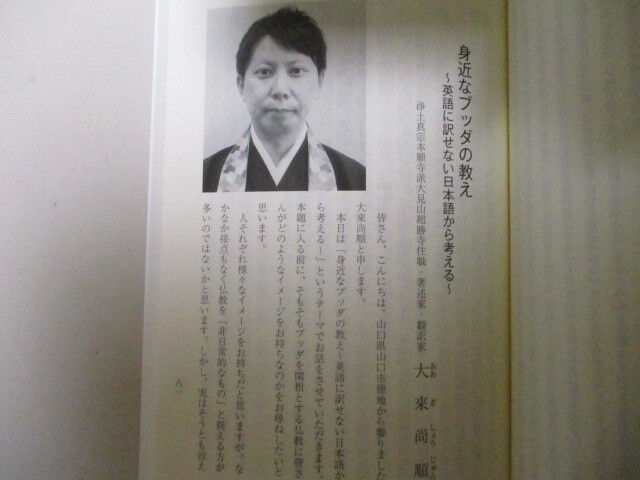 身近なブッダの教え
〜英語に訳せない日本語から考える〜
浄土真宗本願寺派大見山超勝寺住職・著述家・翻訳家
大來尚順
おおぎしょうじゅん
皆さん、こんにちは。山口県山口市徳地から参りました
大來尚順と申します。
本日は「身近なブッダの教え〜英語に訳せない日本語か
ら考える〜」というテーマでお話をさせていただきます。
本題に入る前に、そもそもブッダを開祖とする仏教に皆さ
んがどのようなイメージをお持ちなのかをお尋ねしたいと
思います。
人それぞれ様々なイメージをお持ちだと思いますが、な
かなか接点もなく仏教を「非日常的なもの」と捉える方が
多いのではないかと思います。しかし、実はそうとも言え
八一